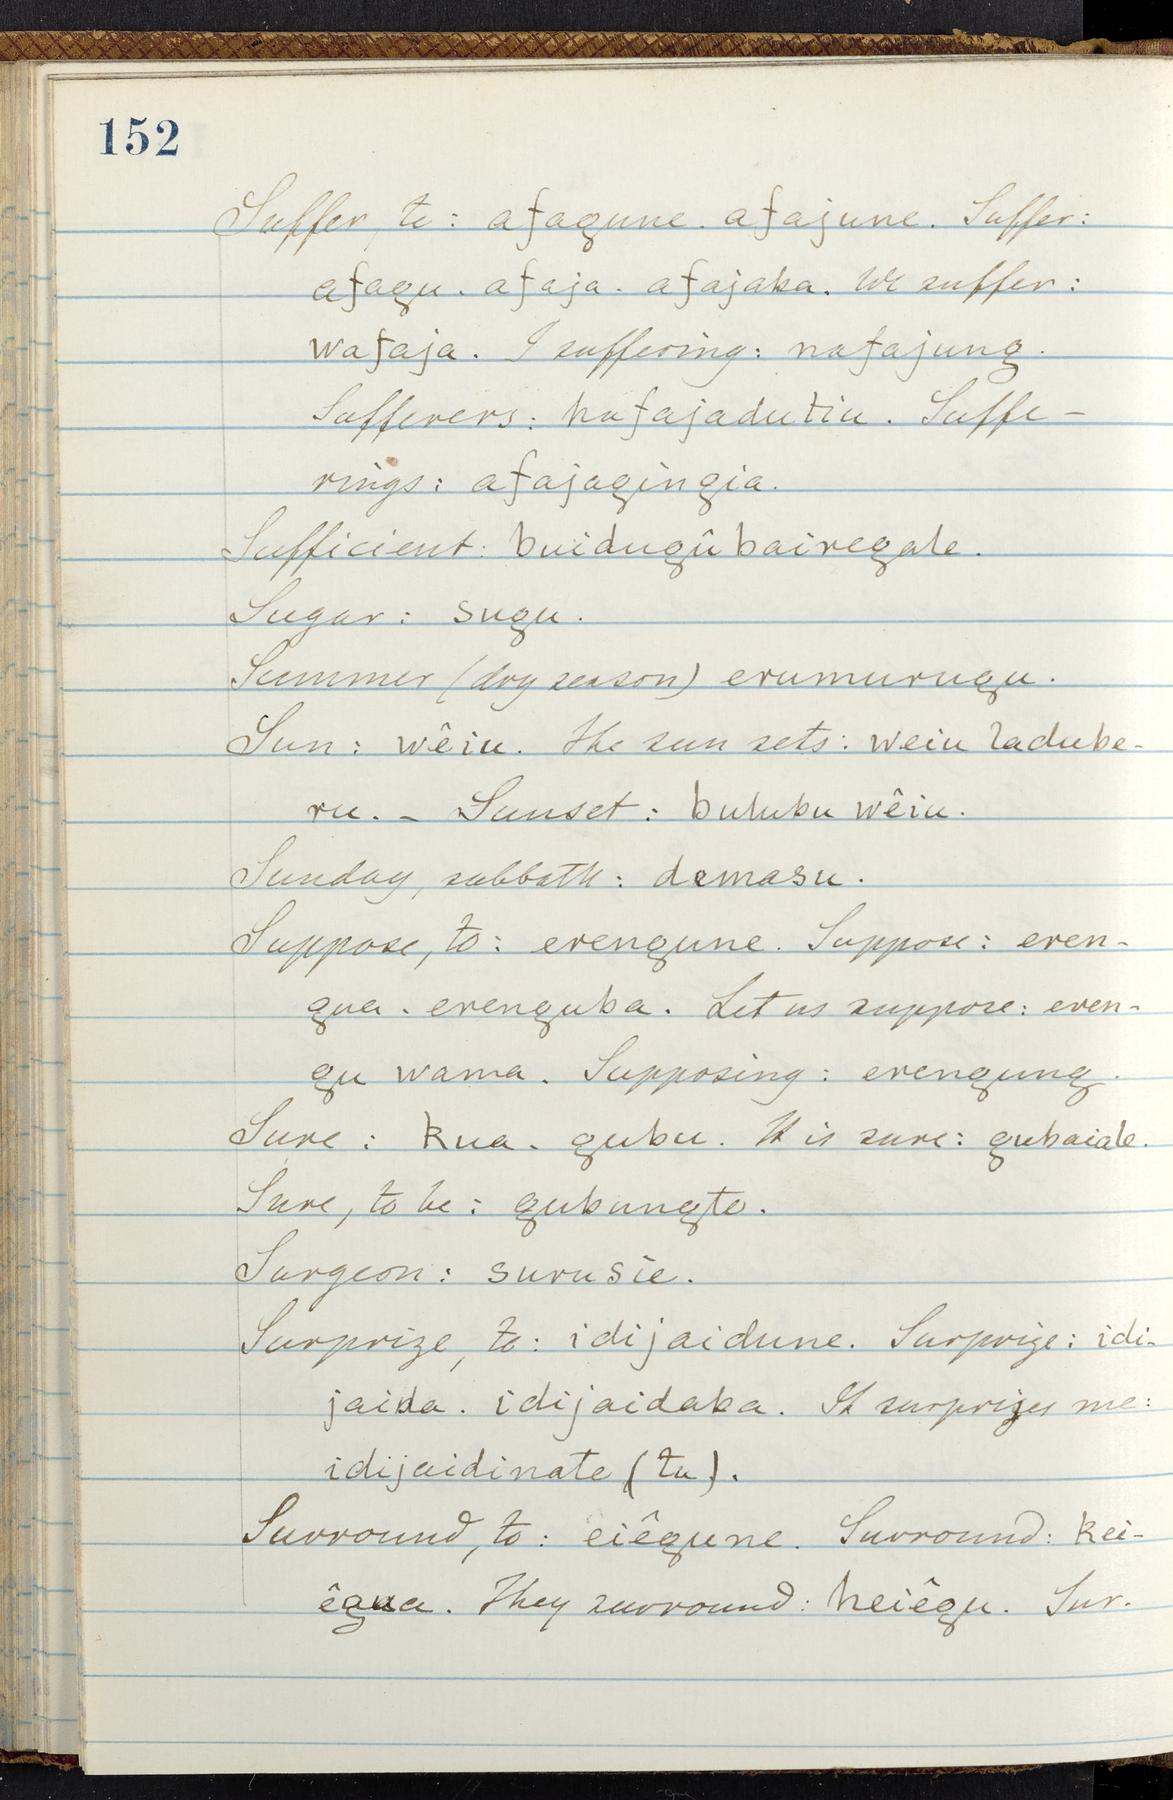 152
Suffer, to: afagune. afajune. Suffer:
afagu. afaja. afajaba. We suffer:
wafaja. I suffering: nafajung.
Sufferers: hafajadutiu. Suffe-
rings: afajagingia.
Sufficient: buidugûbairegale.
Sugar: sugu.
Summer (dry season) erumurugu.
Sun: wêiu. The sun sets: weiu ladube-
ru. - Sunset: bulubu wêiu.
Sunday, sabbath: demasu.
Suppose, to: erengune. Suppose: eren-
gua. erenguba. Let us suppose: eren-
gu wama. Supposing: erengung.
Sure: kua. gubu. It is sure: gubaiale.
Sure, to be: gubungte.
Surgeon: surusie.
Surprize, to: idijaidune. Surprize: idi-
jaida. idijaidaba. It surprizes me:
idijaidinate (tu).
Surround, to: eiêgune. Surround: kei-
êgua. They surround: heiêgu. Sur-